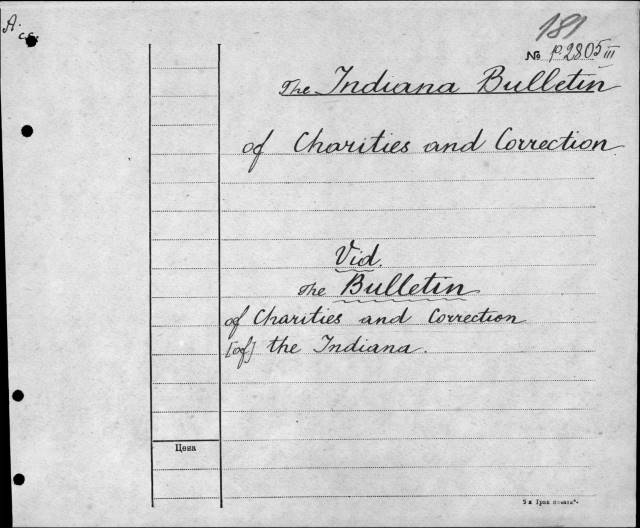 A.
181
№ p.2805 III
The Indiana Bulletin
of Charities and Correction
Vid.
The Bulletin
of Charities and Correction
[of] the Indiana.
Цена